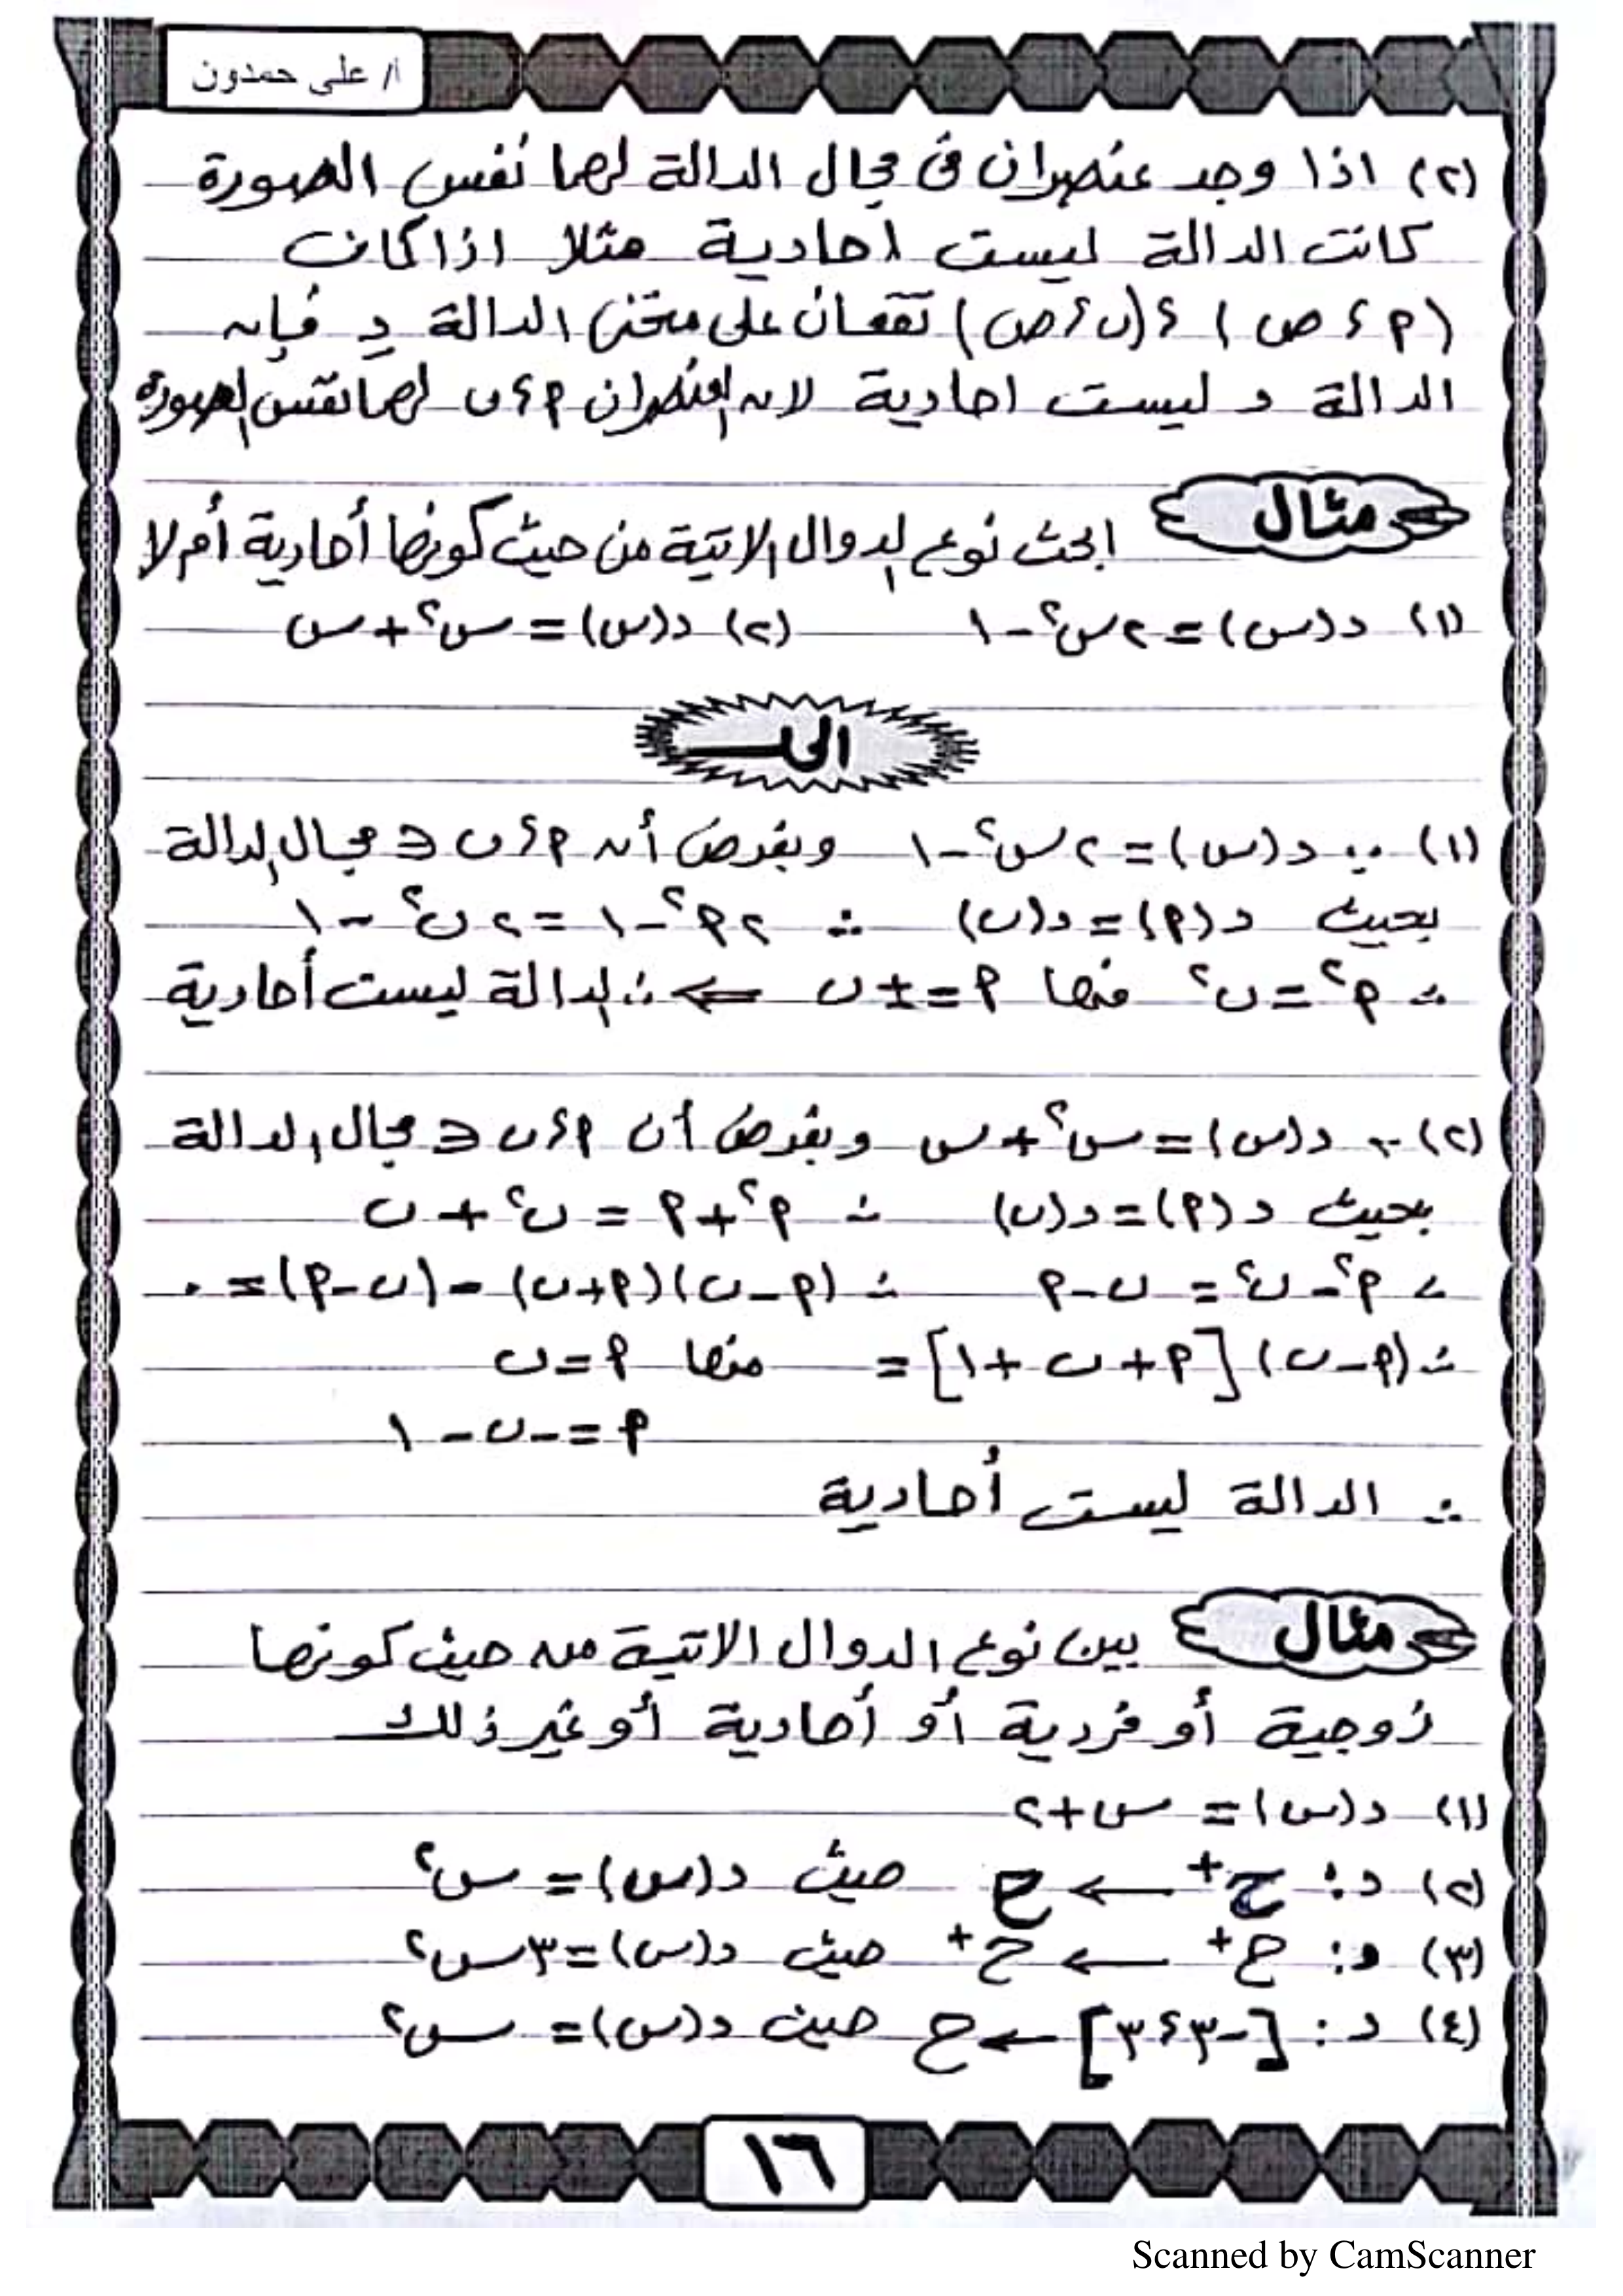 أ/ على حمدون
(٢) اذا وجد عنصران فى مجال الدالة لهما نفس الصورة
كانت الدالة ليست احادية مثلا اذا كان
(P ، ص) ، (ں ، ص) تقعان على منحنى الدالة د فإن
الدالة د ليست احادية لان العنصران P ، ں لهما نفس الصورة
مثال
ابحث نوع الدوال الاتية من حيث كونها أحادية أم لا
(١) د(س) = ٢س٢ - ١ (٢) د(س) = س٢ + س
الحـــل
(١) ∵ د(س) = ٢س٢ - ١ وبفرض أن P ، ں ∈ مجال الدالة
بحيث د(P) = د(ں) ∴ ٢P٢ - ١ = ٢ں٢ - ١
∴ P٢ = ں٢ منها P = ± ں ⇐ ∴ الدالة ليست أحادية
(٢) ∵ د(س) = س٢ + س وبفرض أن P ، ں ∈ مجال الدالة
بحيث د(P) = د(ں) ∴ P٢ + P = ں٢ + ں
∴ P٢ - ں٢ = ں - P ∴ (P - ں)(P + ں) - (ں - P) = ٠
∴ (P - ں) [P + ں + ١] = منها P = ں
P = -ں - ١
∴ الدالة ليست أحادية
مثال
بين نوع الدوال الاتية من حيث كونها
زوجية أو فردية أو أحادية أو غير ذلك
(١) د(س) = س + ٢
(٢) د : ح+ ← ح حيث د(س) = س٢
(٣) د : ح+ ← ح+ حيث د(س) = ٣س٢
(٤) د : [-٣ ، ٣] ← ح حيث د(س) = س٢
١٦
Scanned by CamScanner